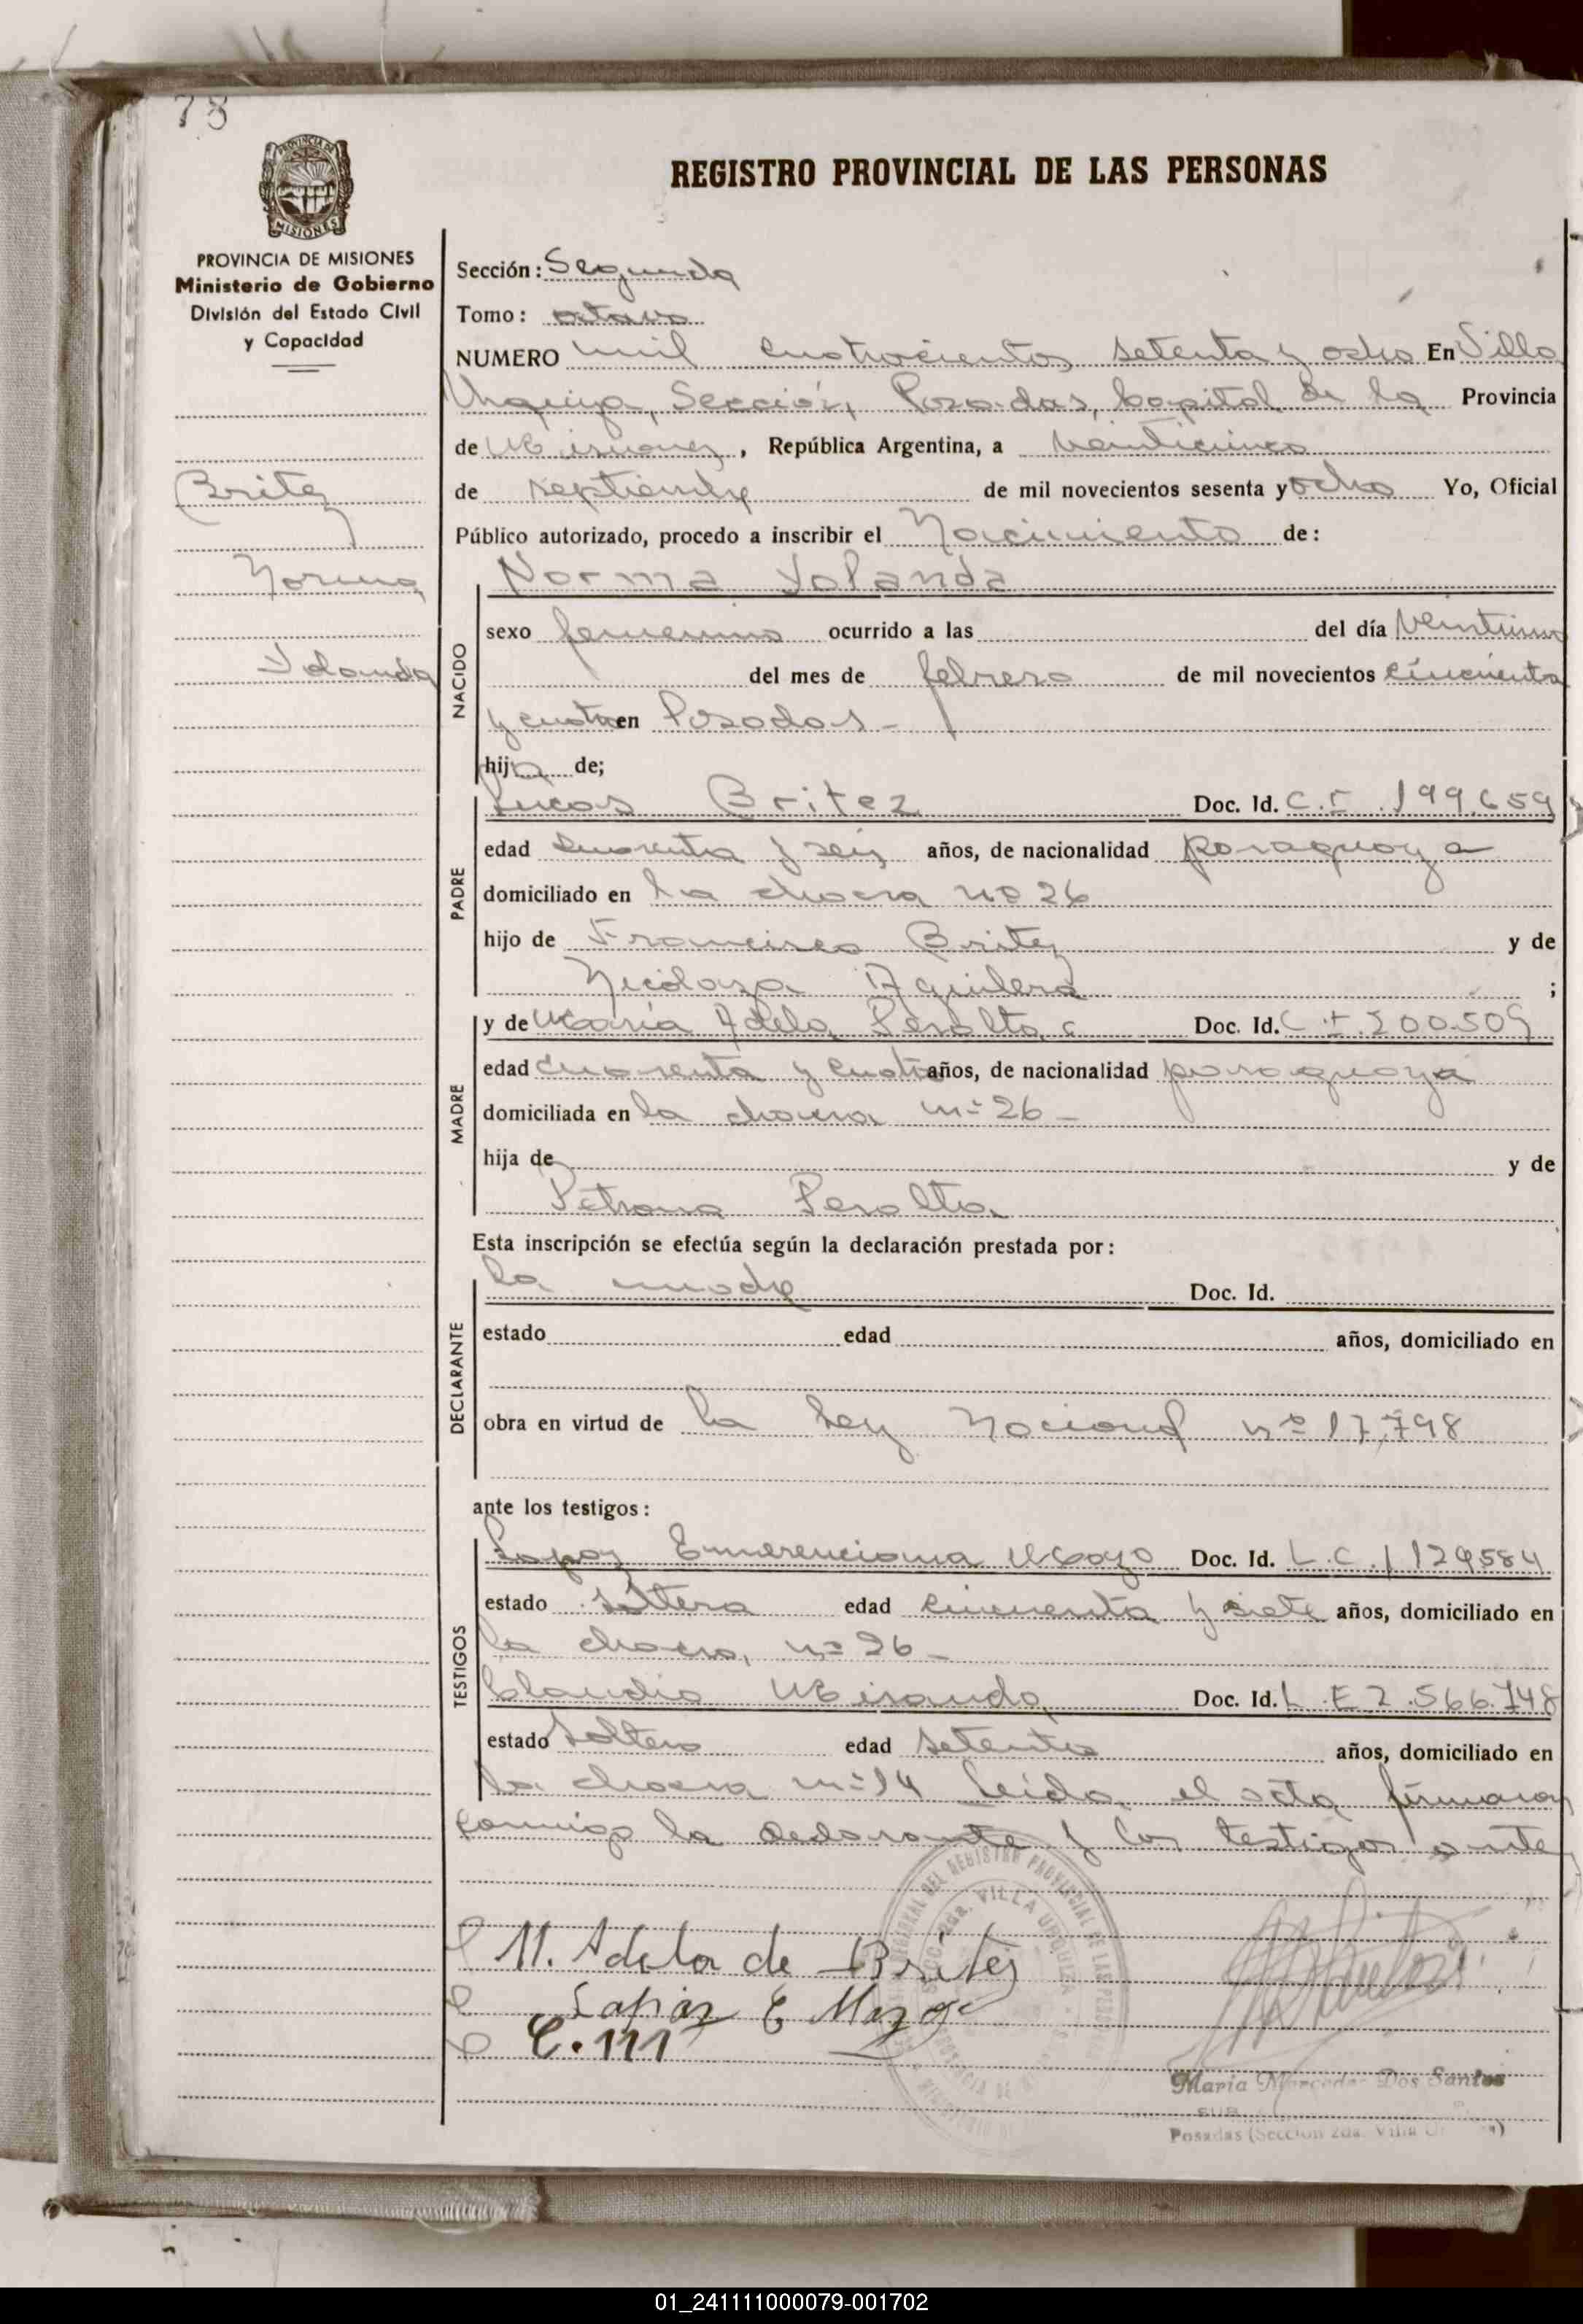 78
PROVINCIA DE MISIONES
Ministerio de Gobierno
División del Estado Civil
y Capacidad
Britez
Norma
Yolanda
REGISTRO PROVINCIAL DE LAS PERSONAS
Sección: Segunda
Tomo: octavo
NUMERO mil cuatrocientos setenta y ocho En Villa
Urquiza, Sección, Posadas, Capital de la Provincia
de Misiones, República Argentina, a veinticinco
de septiembre de mil novecientos sesenta y ocho Yo, Oficial
Público autorizado, procedo a inscribir el Nacimiento de:
NACIDO
Norma Yolanda
sexo femenino ocurrido a las del día veintiuno
del mes de febrero de mil novecientos cincuenta
y cuatro en Posadas -
hija de;
PADRE
Lucas Britez Doc. Id. C.I. 199.659
edad cuarenta y seis años, de nacionalidad paraguaya
domiciliado en la chacra nº 26
hijo de Francisco Britez y de
Nicolaza Aguilera ;
MADRE
y de María Adela Peralta Doc. Id. C.I. 200.509
edad cuarenta y cuatro años, de nacionalidad paraguaya
domiciliada en la chacra nº 26 -
hija de y de
Petrona Peralta
Esta inscripción se efectúa según la declaración prestada por:
DECLARANTE
la madre Doc. Id.
estado edad años, domiciliado en
obra en virtud de la Ley Nacional nº 17,798
ante los testigos:
TESTIGOS
Emerenciana Mazo Doc. Id. L.C. 1129584
estado soltera edad cincuenta y siete años, domiciliado en
la chacra, nº 26 -
Claudio Miranda Doc. Id. L.E 2.566.748
estado soltero edad setenta años, domiciliado en
la chacra nº 14 Leída el acta firmaron
conmigo la declarante y los testigos ante
M. Adela de Britez
E Mazo
C. M
VILLA URQUIZA
Maria Mercedes Dos Santos
SUB
Posadas (Sección 2da. Villa
01_241111000079-001702